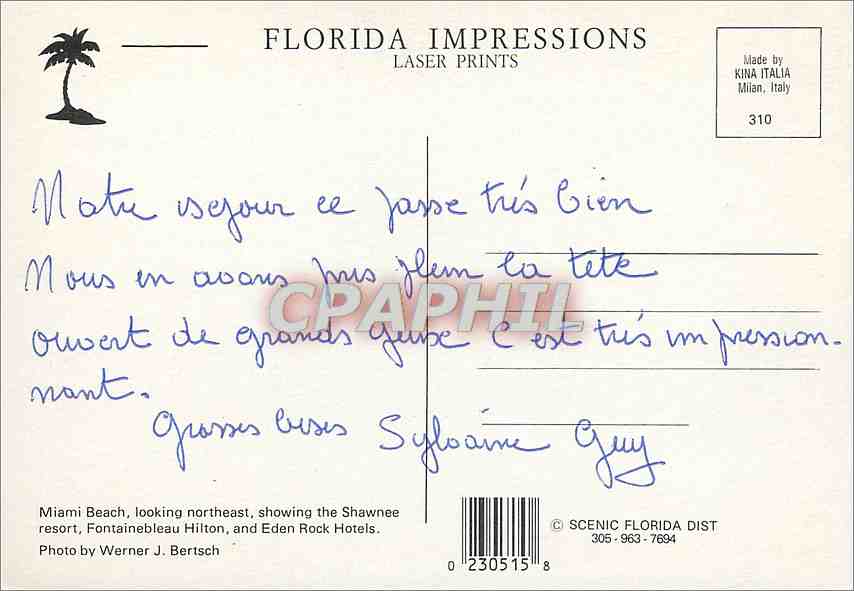 FLORIDA IMPRESSIONS
LASER PRINTS
Made by
KINA ITALIA
Milan, Italy
310
Notre sejour ce passe très bien
Nous en avons pris plein la tete
ouvert de grands yeux C est très impression-
nant.
Grosses bises Sylvaine Guy
CPAPHIL
Miami Beach, looking northeast, showing the Shawnee
resort, Fontainebleau Hilton, and Eden Rock Hotels.
Photo by Werner J. Bertsch
0 230515 8
© SCENIC FLORIDA DIST
305-963-7694